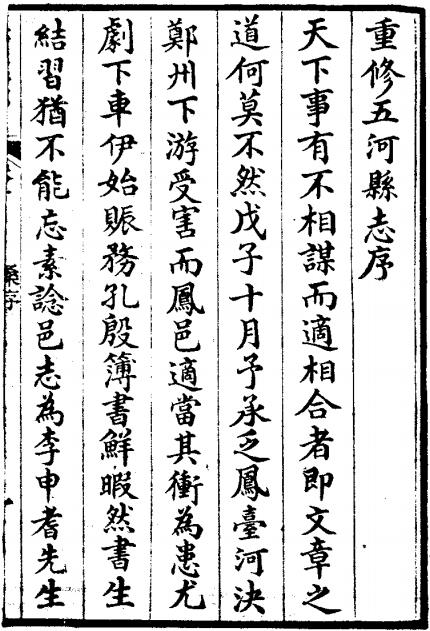 重修五河縣志序
天下事有不相謀而適相合者即文章之
道何莫不然戊子十月予承乏鳳臺河決
鄭州下游受害而鳳邑適當其衝為患尤
劇下車伊始賑務孔殷簿書鮮暇然書生
結習猶不能忘素諗邑志為李申耆先生